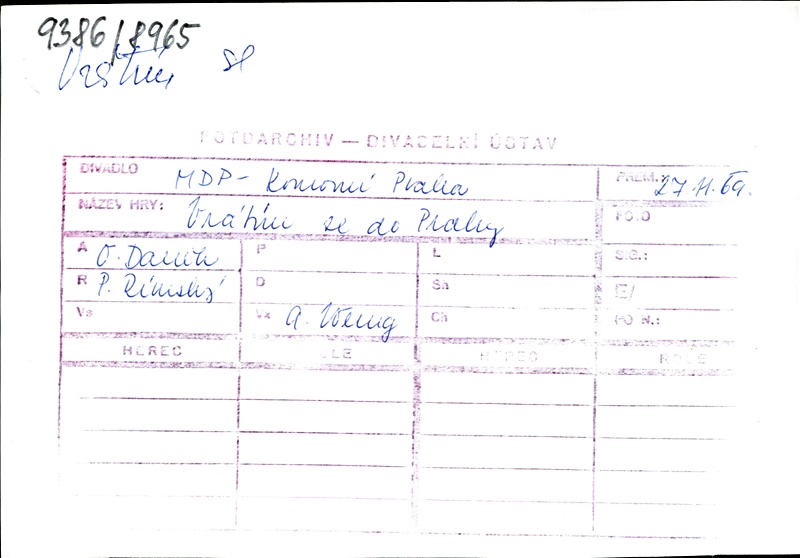 9386/8965
Vrátím se
FOTOARCHIV — DIVADELNÍ ÚSTAV
DIVADLO MDP - Komorní Praha PREM.: 27. 11. 69.
NÁZEV HRY: Vrátím se do Prahy FOTO
A O. Daněk P L S.G.:
R P. Rímský D Sh E/
Vs Vx A. Wenig Ch PO N.:
HEREC ROLE HEREC ROLE